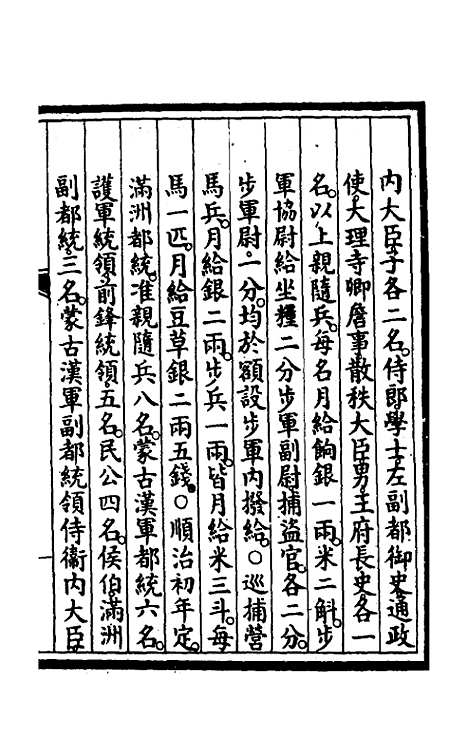 內大臣子各二名。侍郎學士左副都御史通政
使大理寺卿詹事散秩大臣男王府長史各一
名。以上親隨兵。每名月給餉銀一兩。米二斛。步
軍協尉給坐糧二分步軍副尉捕盜官。各二分。
步軍尉。一分。均於額設步軍內撥給。○巡捕營
馬兵。月給銀二兩。步兵一兩。皆月給米三斗。每
馬一匹。月給豆草銀二兩五錢。○順治初年定。
滿洲都統准親隨兵八名。蒙古漢軍都統六名。
護軍統領前鋒統領五名。民公四名。侯伯滿洲
副都統三名。蒙古漢軍副都統領侍衞內大臣